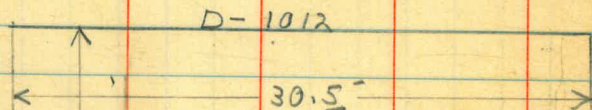 D-1012
30.5